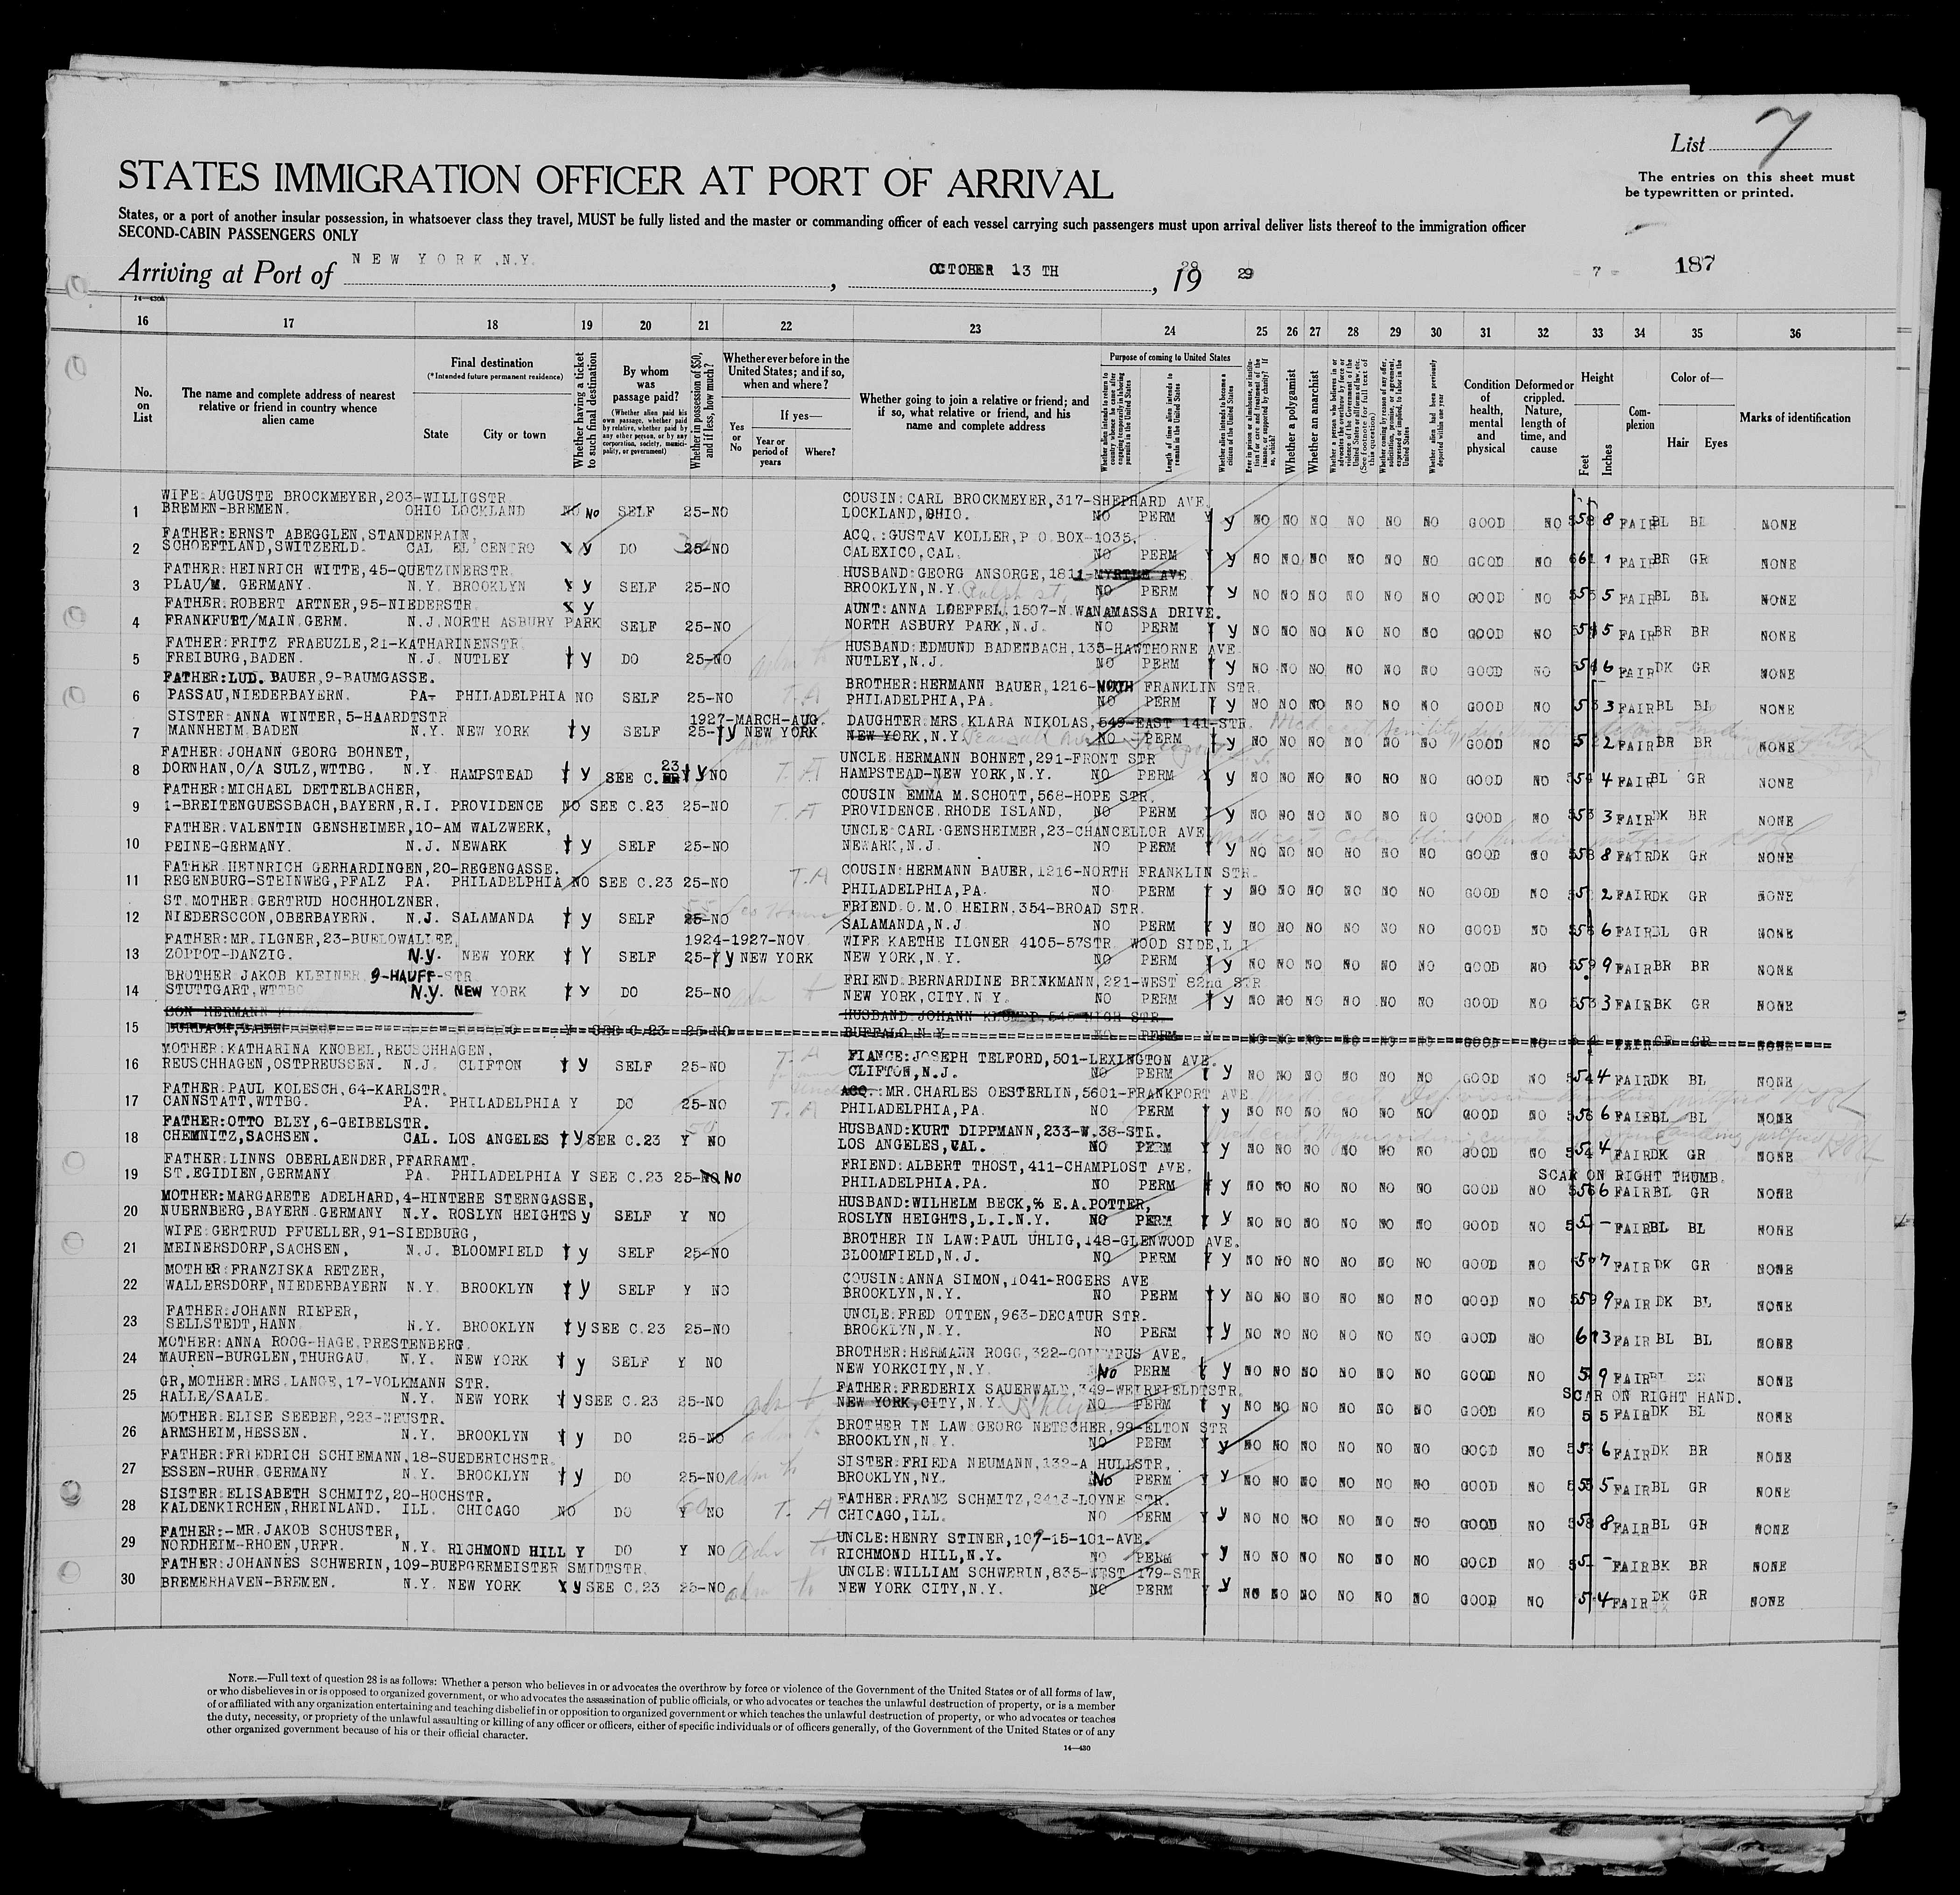 List 7
The entries on this sheet must
be typewritten or printed.
STATES IMMIGRATION OFFICER AT PORT OF ARRIVAL
States, or a port of another insular possession, in whatsoever class they travel, MUST be fully listed and the master or commanding officer of each vessel carrying such passengers must upon arrival deliver lists thereof to the immigration officer
SECOND-CABIN PASSENGERS ONLY
Arriving at Port of NEW YORK, N.Y. , OCTOBER 13 TH , 19 29
7
187
14—430A
16 17 18 19 20 21 22 23 24 25 26 27 28 29 30 31 32 33 34 35 36
No. on List
The name and complete address of nearest relative or friend in country whence alien came
Final destination
(*Intended future permanent residence)
State
City or town
Whether having a ticket to such final destination
By whom was passage paid?
(Whether alien paid his own passage, whether paid by relative, whether paid by any other person, or by any corporation, society, municipality, or government)
Whether in possession of $50, and if less, how much?
Whether ever before in the United States; and if so, when and where?
Yes or No
If yes—
Year or period of years
Where?
Whether going to join a relative or friend; and if so, what relative or friend, and his name and complete address
Purpose of coming to United States
Whether alien intends to return to country whence he came after engaging temporarily in laboring pursuits in the United States
Length of time alien intends to remain in the United States
Whether alien intends to become a citizen of the United States
Ever in prison or almshouse, or institution for care and treatment of the insane, or supported by charity? If so, which?
Whether a polygamist
Whether an anarchist
Whether a person who believes in or advocates the overthrow by force or violence of the Government of the United States or all forms of law, etc. (See footnote for full text of this question)
Whether coming by reason of any offer, solicitation, promise, or agreement, expressed or implied, to labor in the United States
Whether alien had been previously deported within one year
Condition of health, mental and physical
Deformed or crippled. Nature, length of time, and cause
Height
Feet
Inches
Complexion
Color of—
Hair
Eyes
Marks of identification
WIFE:AUGUSTE BROCKMEYER,203-WILLIGSTR. COUSIN:CARL BROCKMEYER,317-SHEPHARD AVE.
1 BREMEN-BREMEN. OHIO LOCKLAND NO SELF 25-NO LOCKLAND,OHIO. NO PERM y NO NO NO NO NO NO GOOD NO 5 8 FAIR BL BL NONE
FATHER:ERNST ABEGGLEN,STANDENRAIN, ACQ.:GUSTAV KOLLER,P.O.BOX-1035,
2 SCHOEFTLAND,SWITZERLD. CAL. EL CENTRO y DO 25-NO CALEXICO,CAL. NO PERM y NO NO NO NO NO NO GOOD NO 6 1 FAIR BR GR NONE
FATHER:HEINRICH WITTE,45-QUETZINERSTR. HUSBAND:GEORG ANSORGE,1811-MYRTLE AVE
3 PLAU/M. GERMANY. N.Y. BROOKLYN y SELF 25-NO BROOKLYN,N.Y. Ralph st. NO PERM y NO NO NO NO NO NO GOOD NO 5 5 FAIR BL BL NONE
FATHER:ROBERT ARTNER,95-NIEDERSTR. y AUNT:ANNA LOEFFEL,1507-N.WANAMASSA DRIVE.
4 FRANKFURT/MAIN,GERM. N.J. NORTH ASBURY PARK SELF 25-NO NORTH ASBURY PARK,N.J. NO PERM y NO NO NO NO NO NO GOOD NO 5 5 FAIR BR BR NONE
FATHER:FRITZ FRAEUZLE,21-KATHARINENSTR. HUSBAND:EDMUND BADENBACH,135-HAWTHORNE AVE.
5 FREIBURG,BADEN. N.J. NUTLEY y DO 25-NO NUTLEY,N.J. NO PERM y NO NO NO NO NO NO GOOD NO 5 6 FAIR DK GR NONE
FATHER:LUD. BAUER,9-BAUMGASSE. BROTHER:HERMANN BAUER,1216-NORTH FRANKLIN STR.
6 PASSAU,NIEDERBAYERN. PA- PHILADELPHIA NO SELF 25-NO T.A PHILADELPHIA,PA. NO PERM y NO NO NO NO NO NO GOOD NO 5 3 FAIR BL BL NONE
SISTER:ANNA WINTER,5-HAARDTSTR 1927-MARCH-AUG. DAUGHTER:MRS.KLARA NIKOLAS,549-EAST 141-STR.
7 MANNHEIM.BADEN N.Y. NEW YORK y SELF 25- y NEW YORK NEW YORK,N.Y. NO PERM y NO NO NO NO NO NO GOOD NO 5 2 FAIR BR BR NONE
FATHER:JOHANN GEORG BOHNET, UNCLE:HERMANN BOHNET,291-FRONT STR
8 DORNHAN,O/A SULZ,WTTBG. N.Y. HAMPSTEAD y SEE C.23 y NO T.A HAMPSTEAD-NEW YORK,N.Y. NO PERM y NO NO NO NO NO NO GOOD NO 5 4 FAIR BL GR NONE
FATHER:MICHAEL DETTELBACHER, COUSIN EMMA M.SCHOTT,568-HOPE STR.
9 1-BREITENGUESSBACH,BAYERN,R.I. PROVIDENCE NO SEE C.23 25-NO T.A PROVIDENCE.RHODE ISLAND. NO PERM y NO NO NO NO NO NO GOOD NO 5 3 FAIR DK BR NONE
FATHER:VALENTIN GENSHEIMER,10-AM WALZWERK, UNCLE:CARL GENSHEIMER,23-CHANCELLOR AVE.
10 PEINE-GERMANY. N.J. NEWARK y SELF 25-NO NEWARK,N.J. NO PERM y NO NO NO NO NO NO GOOD NO 5 8 FAIR DK GR NONE
FATHER:HEINRICH GERHARDINGEN,20-REGENGASSE. COUSIN:HERMANN BAUER,1216-NORTH FRANKLIN STR.
11 REGENBURG-STEINWEG,PFALZ PA. PHILADELPHIA NO SEE C.23 25-NO T.A PHILADELPHIA,PA. NO PERM y NO NO NO NO NO NO GOOD NO 5 2 FAIR DK GR NONE
ST.MOTHER:GERTRUD HOCHHOLZNER. FRIEND:O.M.O HEIRN.354-BROAD STR.
12 NIEDERSCCON,OBERBAYERN. N.J. SALAMANDA y SELF 25-NO SALAMANDA,N.J NO PERM y NO NO NO NO NO NO GOOD NO 5 6 FAIR BL GR NONE
FATHER:MR.ILGNER,23-BUELOWALLEE. 1924-1927-NOV. WIFE KAETHE ILGNER 4105-57STR. WOOD SIDE,L.I
13 ZOPPOT-DANZIG. N.y. NEW YORK Y SELF 25- y NEW YORK NEW YORK,N.Y. NO PERM y NO NO NO NO NO NO GOOD NO 5 9 FAIR BR BR NONE
BROTHER JAKOB KLEINER 9-HAUFF-STR FRIEND:BERNARDINE BRINKMANN,221-WEST 82nd STR
14 STUTTGART,WTTBG N.y. NEW YORK y DO 25-NO NEW YORK,CITY.N.Y. NO PERM y NO NO NO NO NO NO GOOD NO 5 3 FAIR BK GR NONE
SON HERMANN HUSBAND:JOHANN KLUMPP,545-HIGH STR.
15 DURLACH,BADEN SEE C.23 25-NO BUFFALO N.Y. NO PERM NO NO NO NO NO NO GOOD NO FAIR GR GR NONE
MOTHER:KATHARINA KNOBEL,REUSCHHAGEN. FIANCE:JOSEPH TELFORD,501-LEXINGTON AVE.
16 REUSCHHAGEN,OSTPREUSSEN. N.J. CLIFTON y SELF 25-NO T.A CLIFTON,N.J. NO PERM y NO NO NO NO NO NO GOOD NO 5 4 FAIR DK BL NONE
FATHER:PAUL KOLESCH,64-KARLSTR. ACQ.:MR.CHARLES OESTERLIN,5601-FRANKFORT AVE
17 CANNSTATT,WTTBG. PA. PHILADELPHIA Y DO 25-NO T.A PHILADELPHIA,PA. NO PERM y NO NO NO NO NO NO GOOD NO 5 6 FAIR BL BL NONE
FATHER:OTTO BLEY,6-GEIBELSTR. HUSBAND:KURT DIPPMANN,233-W.38-STR.
18 CHEMNITZ,SACHSEN. CAL. LOS ANGELES y SEE C.23 Y NO LOS ANGELES,CAL. NO PERM y NO NO NO NO NO NO GOOD NO 5 4 FAIR DK GR NONE
FATHER:LINNS OBERLAENDER,PFARRAMT. FRIEND:ALBERT THOST,411-CHAMPLOST AVE. SCAR ON RIGHT THUMB.
19 ST.EGIDIEN,GERMANY PA. PHILADELPHIA Y SEE C.23 25-NO NO PHILADELPHIA.PA. NO PERM y NO NO NO NO NO NO GOOD NO 5 6 FAIR BL GR NONE
MOTHER:MARGARETE ADELHARD,4-HINTERE STERNGASSE, HUSBAND:WILHELM BECK,% E.A.POTTER,
20 NUERNBERG,BAYERN.GERMANY N.Y. ROSLYN HEIGHTS y SELF Y NO ROSLYN HEIGHTS,L.I.N.Y. NO PERM y NO NO NO NO NO NO GOOD NO 5 - FAIR BL BL NONE
WIFE:GERTRUD PFUELLER,91-SIEDBURG, BROTHER IN LAW:PAUL UHLIG,148-GLENWOOD AVE.
21 MEINERSDORF,SACHSEN, N.J. BLOOMFIELD y SELF 25-NO BLOOMFIELD,N.J. NO PERM y NO NO NO NO NO NO GOOD NO 5 7 FAIR DK GR NONE
MOTHER:FRANZISKA RETZER, COUSIN:ANNA SIMON,1041-ROGERS AVE
22 WALLERSDORF,NIEDERBAYERN N.Y. BROOKLYN y SELF Y NO BROOKLYN,N.Y. NO PERM y NO NO NO NO NO NO GOOD NO 5 9 FAIR DK BL NONE
FATHER:JOHANN RIEPER, UNCLE:FRED OTTEN,963-DECATUR STR.
23 SELLSTEDT,HANN. N.Y. BROOKLYN y SEE C.23 25-NO BROOKLYN,N.Y. NO PERM y NO NO NO NO NO NO GOOD NO 6 3 FAIR BL BL NONE
MOTHER:ANNA ROOG-HAGE,PRESTENBERG. BROTHER:HERMANN ROGG,322-COLUMBUS AVE.
24 MAUREN-BURGLEN,THURGAU. N.Y. NEW YORK y SELF Y NO NEW YORKCITY,N.Y. No PERM y NO NO NO NO NO NO GOOD NO 5 9 FAIR BL BR NONE
GR,MOTHER:MRS.LANGE,17-VOLKMANN STR. FATHER:FREDERIX SAUERWALD,349-WEIRFIELDTSTR. SCAR ON RIGHT HAND.
25 HALLE/SAALE. N.Y. NEW YORK y SEE C.23 25-NO NEW YORK,CITY,N.Y. NO PERM y NO NO NO NO NO NO GOOD NO 5 5 FAIR DK BL NONE
MOTHER:ELISE SEEBER,223-NEUSTR. BROTHER IN LAW:GEORG NETSCHER,99-ELTON STR
26 ARMSHEIM,HESSEN. N.Y. BROOKLYN y DO 25-NO BROOKLYN,N.Y. NO PERM y NO NO NO NO NO NO GOOD NO 5 6 FAIR DK BR NONE
FATHER:FRIEDRICH SCHIEMANN,18-SUEDERICHSTR. SISTER:FRIEDA NEUMANN,132-A HULLSTR.
27 ESSEN-RUHR.GERMANY N.Y. BROOKLYN y DO 25-NO BROOKLYN,NY. No PERM y NO NO NO NO NO NO GOOD NO 5 5 FAIR BL GR NONE
SISTER:ELISABETH SCHMITZ,20-HOCHSTR. FATHER:FRANZ SCHMITZ,2413-LOYNE STR.
28 KALDENKIRCHEN,RHEINLAND. ILL. CHICAGO NO DO Y NO T.A CHICAGO,ILL. NO PERM y NO NO NO NO NO NO GOOD NO 5 8 FAIR BL GR NONE
FATHER:-MR.JAKOB SCHUSTER, UNCLE:HENRY STINER,109-15-101-AVE.
29 NORDHEIM-RHOEN,URFR. N.Y. RICHMOND HILL Y DO Y NO RICHMOND HILL,N.Y. NO PERM y NO NO NO NO NO NO GOOD NO 5 - FAIR BK BR NONE
FATHER:JOHANNES SCHWERIN,109-BUERGERMEISTER SMIDTSTR. UNCLE:WILLIAM SCHWERIN,835-WEST 179-STR
30 BREMERHAVEN-BREMEN. N.Y. NEW YORK y SEE C.23 25-NO NEW YORK CITY,N.Y. NO PERM y NO NO NO NO NO NO GOOD NO 5 4 FAIR DK GR NONE
NOTE.—Full text of question 28 is as follows: Whether a person who believes in or advocates the overthrow by force or violence of the Government of the United States or of all forms of law,
or who disbelieves in or is opposed to organized government, or who advocates the assassination of public officials, or who advocates or teaches the unlawful destruction of property, or is a member
of or affiliated with any organization entertaining and teaching disbelief in or opposition to organized government or which teaches the unlawful destruction of property, or who advocates or teaches
the duty, necessity, or propriety of the unlawful assaulting or killing of any officer or officers, either of specific individuals or of officers generally, of the Government of the United States or of any
other organized government because of his or their official character.
14—430